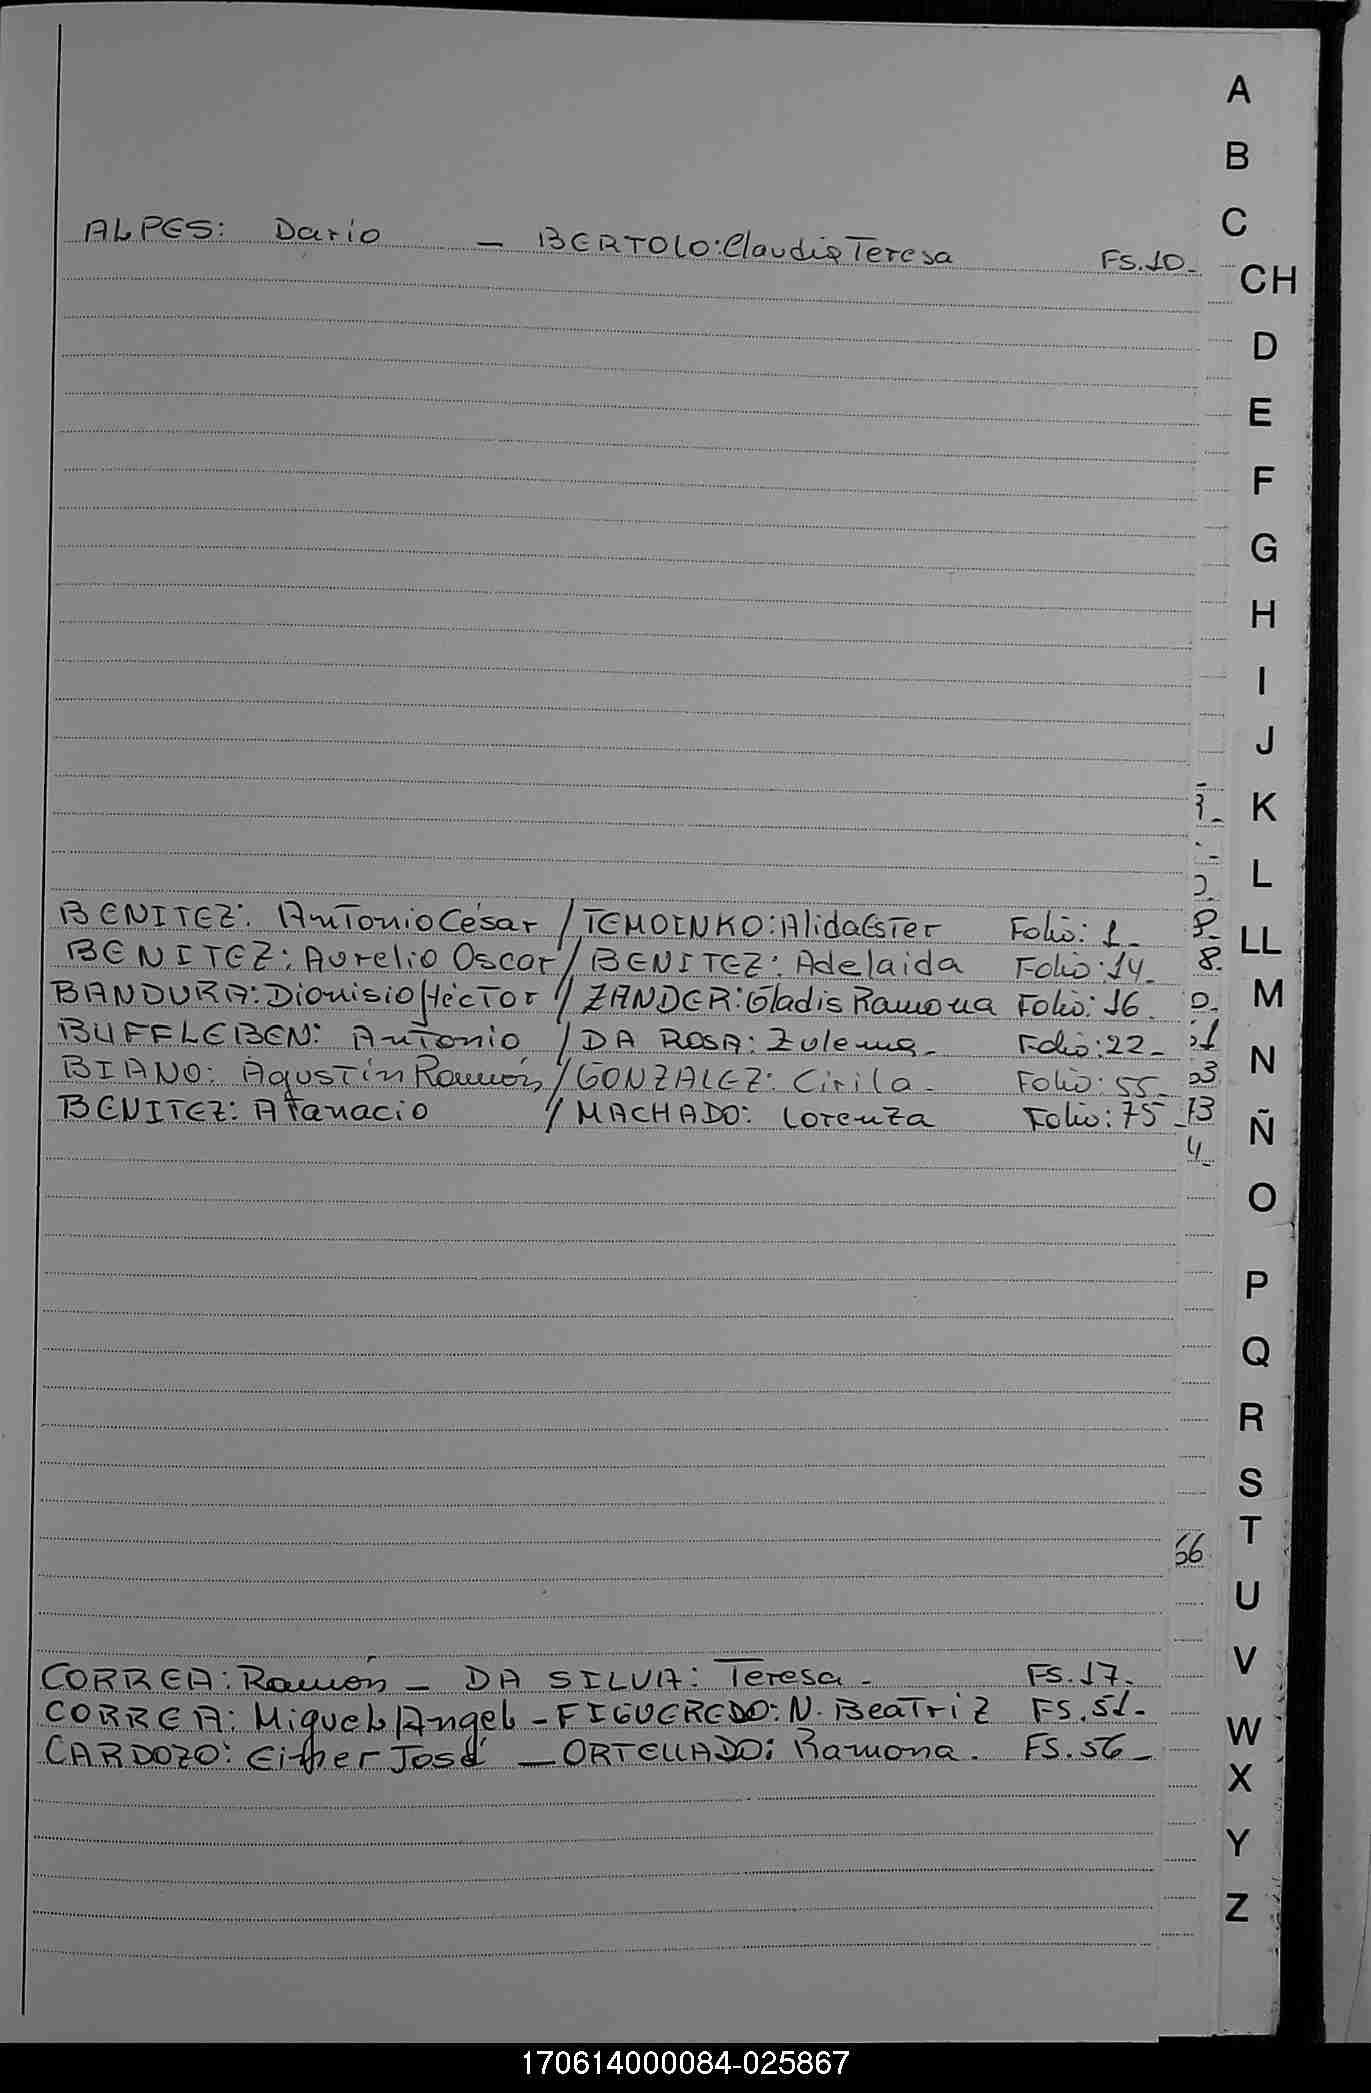 A
B
C
ALPES: Dario — BERTOLO: Claudia Teresa FS.10_
CH
D
E
F
G
H
I
J
K
L
BENITEZ: Antonio César / TEMOINKO: Alida Ester Folio: 1_
LL
BENITEZ: Aurelio Oscar / BENITEZ: Adelaida Folio: 14_ 8.
BANDURA: Dionisio Héctor // ZANDER: Gladis Ramona Folio: 16_
M
BUFFLEBEN: Antonio / DA ROSA: Zulema_ Folio: 22_
N
BIANO: Agustín Ramón / GONZALEZ: Cirila_ Folio: 55_
BENITEZ: Atanacio // MACHADO: Lorenza Folio: 75_ 13
Ñ
4_
O
P
Q
R
S
T
66
U
V
CORREA: Ramón — DA SILVA: Teresa_ FS.17_
CORREA: Miguel Angel — FIGUEREDO: N. Beatriz FS.51_
W
CARDOZO: Either José — ORTELLADO: Ramona. FS.56_
X
Y
Z
170614000084-025867